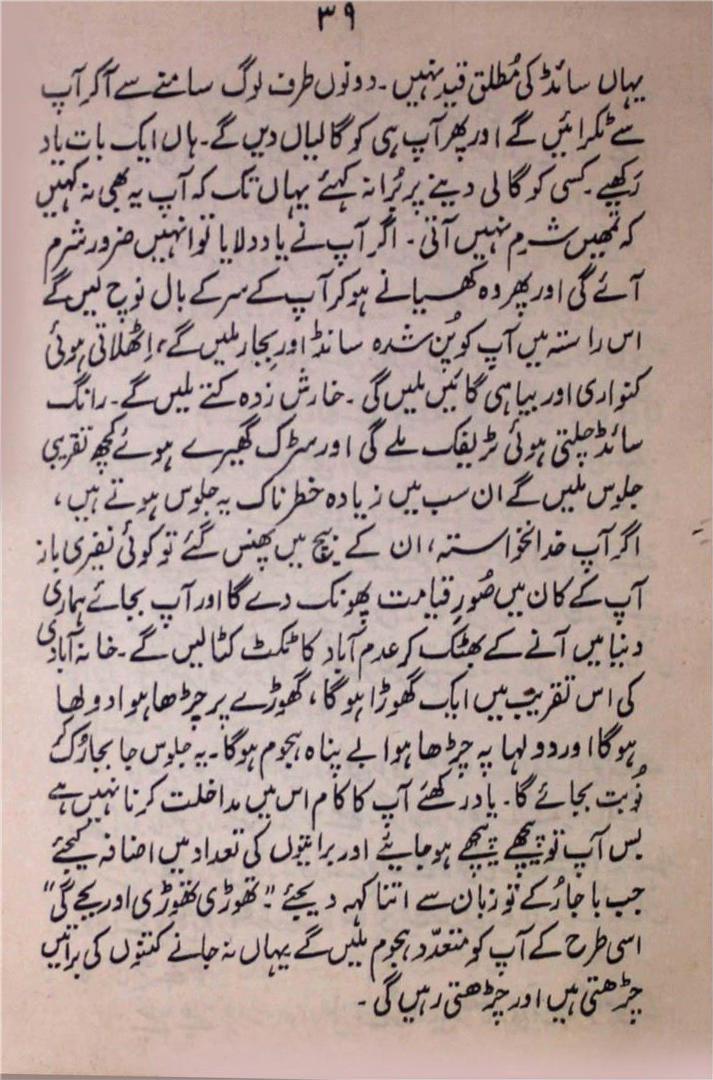 ۳۹
یہاں سائڈ کی مُطلق قید نہیں ۔ دونوں طرف لوگ سامنے سے آ کر آپ
سے ٹکرائیں گے اور پھر آپ ہی کو گالیاں دیں گے ۔ ہاں ایک بات یاد
رکھیے ۔ کسی کو گالی دینے پر بُرا نہ کہئے یہاں تک کہ آپ یہ بھی نہ کہیں
کہ تمھیں شرم نہیں آتی ۔ اگر آپ نے یاد دلایا تو انہیں ضرور شرم
آئے گی اور پھر وہ کھسیانے ہو کر آپ کے سر کے بال نوچ لیں گے
اس راستہ میں آپ کو پُن شدہ سانڈ اور بجار ملیں گے ، اِٹھلاتی ہوئی
کنواری اور بیاہی گائیں ملیں گی ۔ خارش زدہ کتے ملیں گے ۔ رانگ
سائڈ چلتی ہوئی ٹریفک ملے گی اور سڑک گھیرے ہوئے کچھ تقریبی
جلوس ملیں گے ان سب میں زیادہ خطرناک یہ جلوس ہوتے ہیں ،
اگر آپ خدانخواستہ ، ان کے بیچ میں پھنس گئے تو کوئی نفیری باز
آپ کے کان میں صُورِ قیامت پھونک دے گا اور آپ بجائے ہماری
دنیا میں آنے کے بھٹک کر عدم آباد کا ٹکٹ کٹا لیں گے ۔ خانہ آبادی
کی اس تقریب میں ایک گھوڑا ہوگا ، گھوڑے پر چڑھا ہوا دولھا
ہوگا اور دولہا پہ چڑھا ہوا بے پناہ ہجوم ہوگا ۔ یہ جلوس جا بجا رُک کر
نُوبت بجائے گا ۔ یاد رکھئے آپ کا کام اس میں مداخلت کرنا نہیں ہے
بس آپ تو پیچھے پیچھے ہو جائیے اور براتیوں کی تعداد میں اضافہ کیجئے
جب باجا رُکے تو زبان سے اتنا کہہ دیجئے "تھوڑی تھوڑی اور بجے گی"
اسی طرح کے آپ کو متعدّد ہجوم ملیں گے یہاں نہ جانے کتنوں کی براتیں
چڑھتی ہیں اور چڑھتی رہیں گی ۔